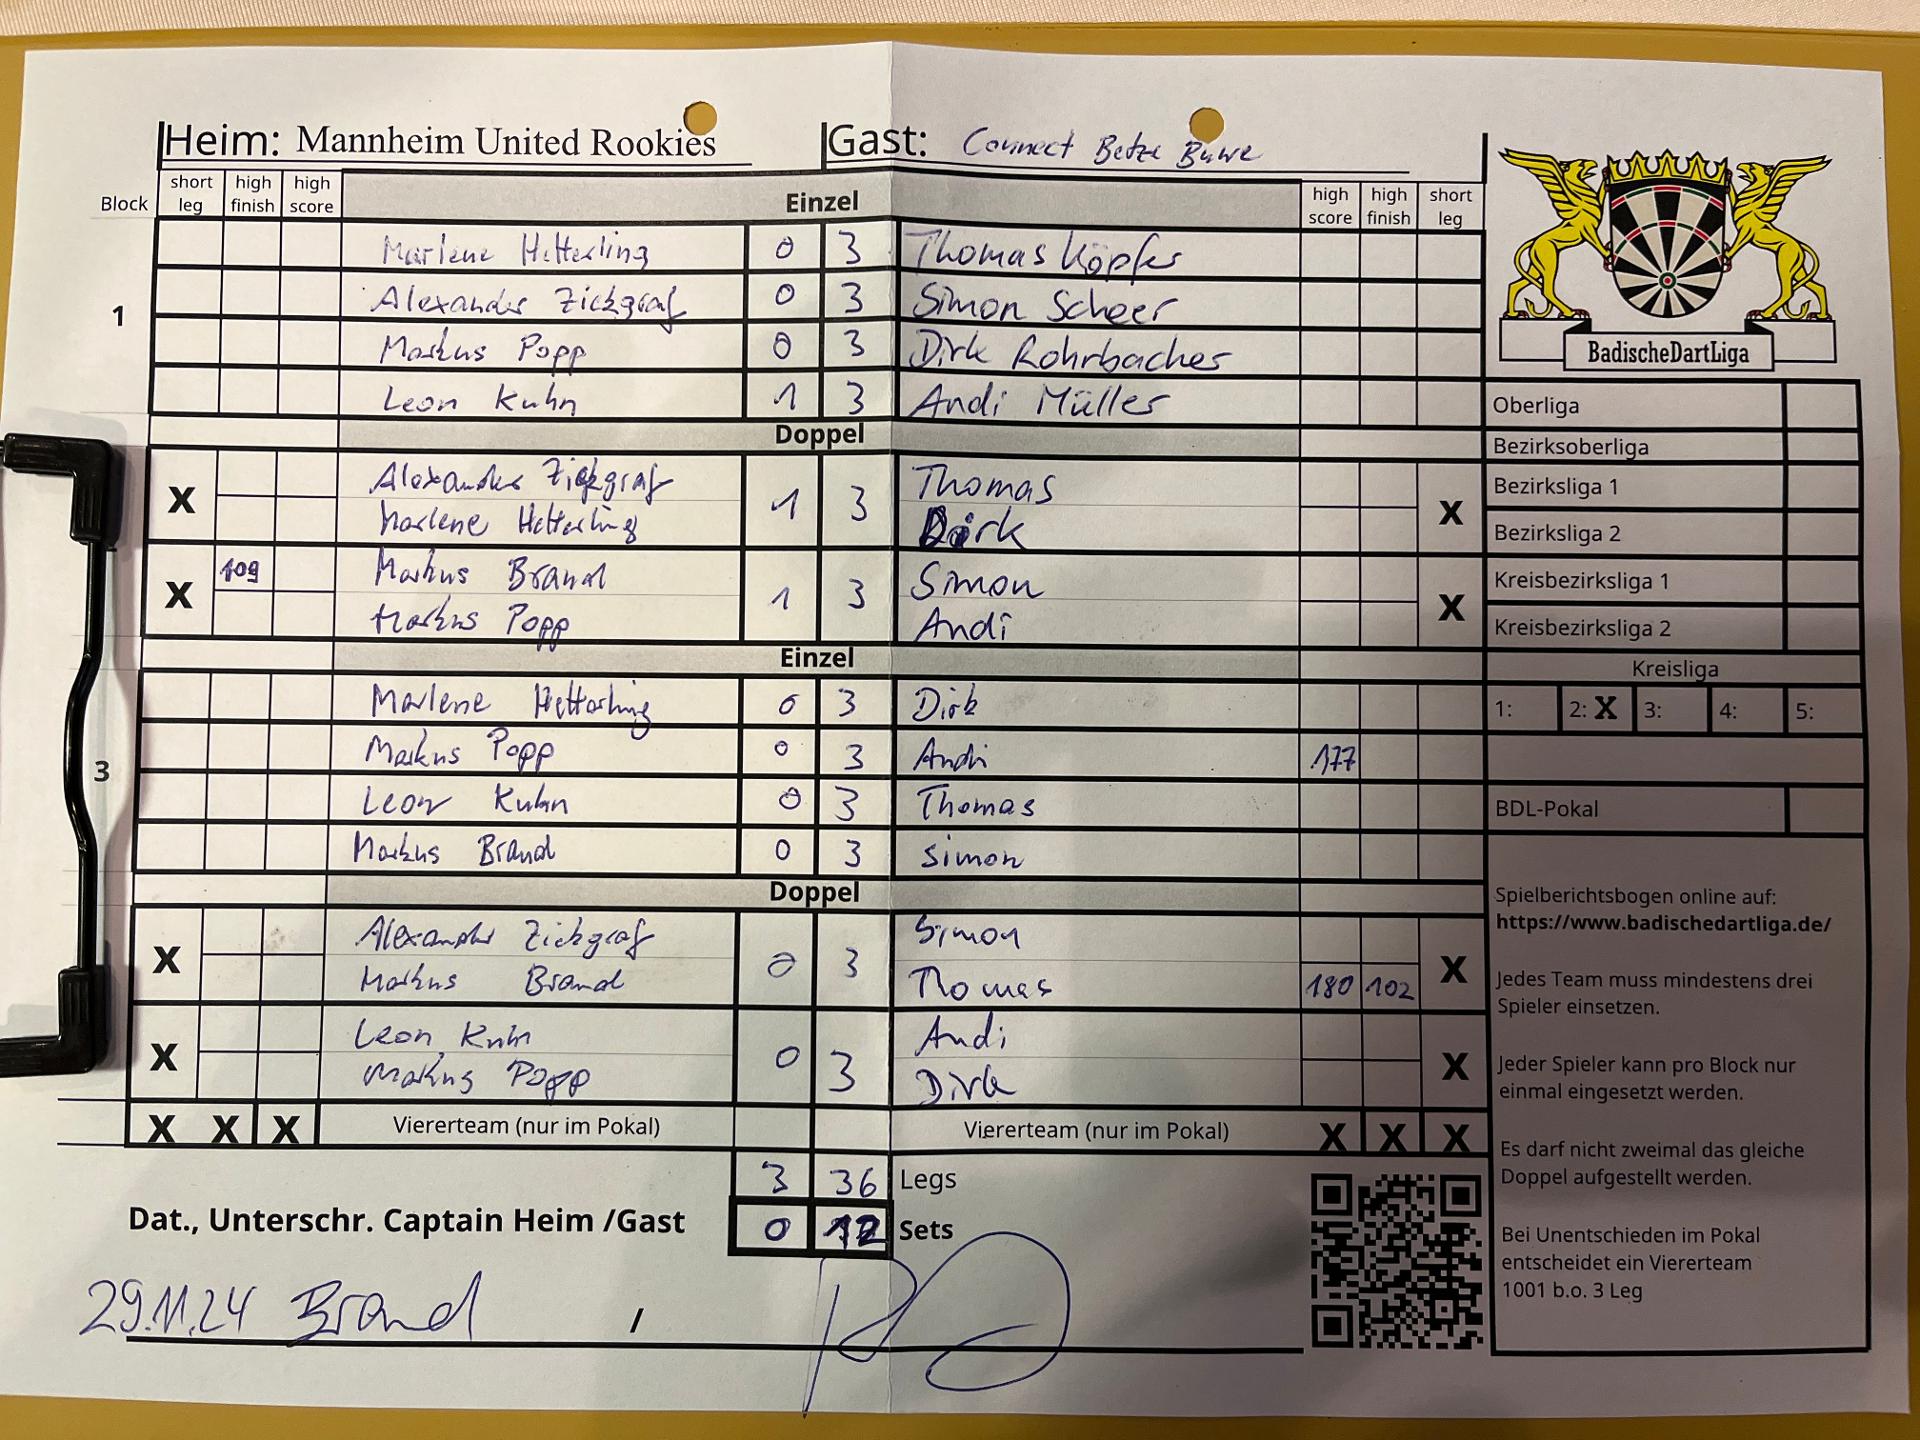 Heim: Mannheim United Rookies Gast: Connect Betze Buwe
Block short leg high finish high score Einzel high score high finish short leg
1
Marlene Hetterling 0 3 Thomas Köpfer
Alexander Zickgraf 0 3 Simon Scheer
Markus Popp 0 3 Dirk Rohrbacher
Leon Kuhn 1 3 Andi Müller
Doppel
X Alexander Zickgraf 1 3 Thomas X
Marlene Hetterling Dirk
X 109 Markus Brand 1 3 Simon X
Markus Popp Andi
Einzel
3
Marlene Hetterling 0 3 Dirk
Markus Popp 0 3 Andi 177
Leon Kuhn 0 3 Thomas
Markus Brand 0 3 Simon
Doppel
X Alexander Zickgraf 0 3 Simon X
Markus Brand Thomas 180 102
X Leon Kuhn 0 3 Andi X
Markus Popp Dirk
X X X Viererteam (nur im Pokal) Viererteam (nur im Pokal) X X X
3 36 Legs
Dat., Unterschr. Captain Heim /Gast 0 12 Sets
29.11.24 Brand /
BadischeDartLiga
Oberliga
Bezirksoberliga
Bezirksliga 1
Bezirksliga 2
Kreisbezirksliga 1
Kreisbezirksliga 2
Kreisliga
1: 2: X 3: 4: 5:
BDL-Pokal
Spielberichtsbogen online auf:
https://www.badischedartliga.de/
Jedes Team muss mindestens drei
Spieler einsetzen.
Jeder Spieler kann pro Block nur
einmal eingesetzt werden.
Es darf nicht zweimal das gleiche
Doppel aufgestellt werden.
Bei Unentschieden im Pokal
entscheidet ein Viererteam
1001 b.o. 3 Leg